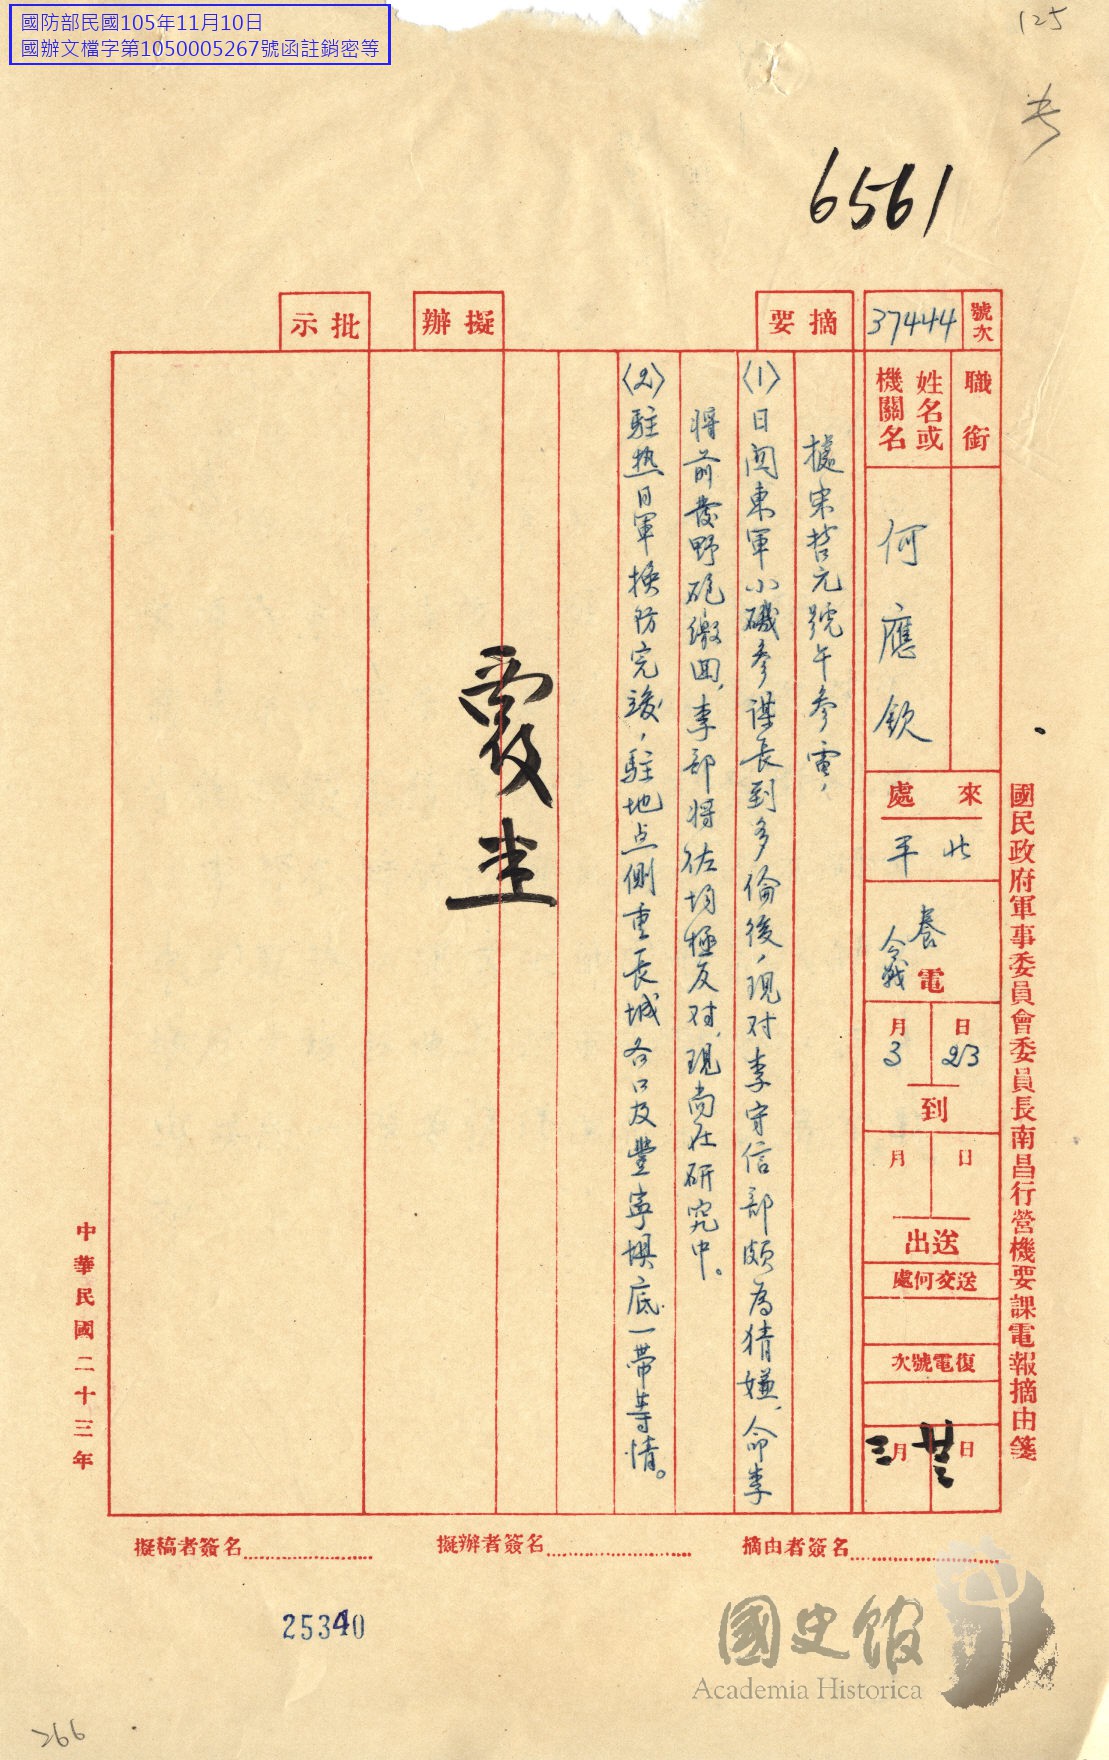 國防部民國105年11月10日
國辦文檔字第1050005267號函註銷密等
125
6561
國民政府軍事委員會委員長南昌行營機要課電報摘由箋
號次
37444
職銜
姓名或
機關名
何應欽
來處
北平
養
令戰
電
3月
23日
到
月
日
送出
送交何處
復電號次
三月
日
摘要
據宋哲元號午參電，
(1)日關東軍小磯參謀長到多倫後，現対李守信部頗為猜嫌，命李
將前發野砲繳回，李部將佐均極反対，現尚在研究中。
(2)駐热日軍換防完竣，駐地点側重長城各口及豐寧垻底一帶等情。
擬辦
覆
批示
中華民國二十三年
摘由者簽名
擬辦者簽名
擬稿者簽名
25340
國史館
Academia Historica
266